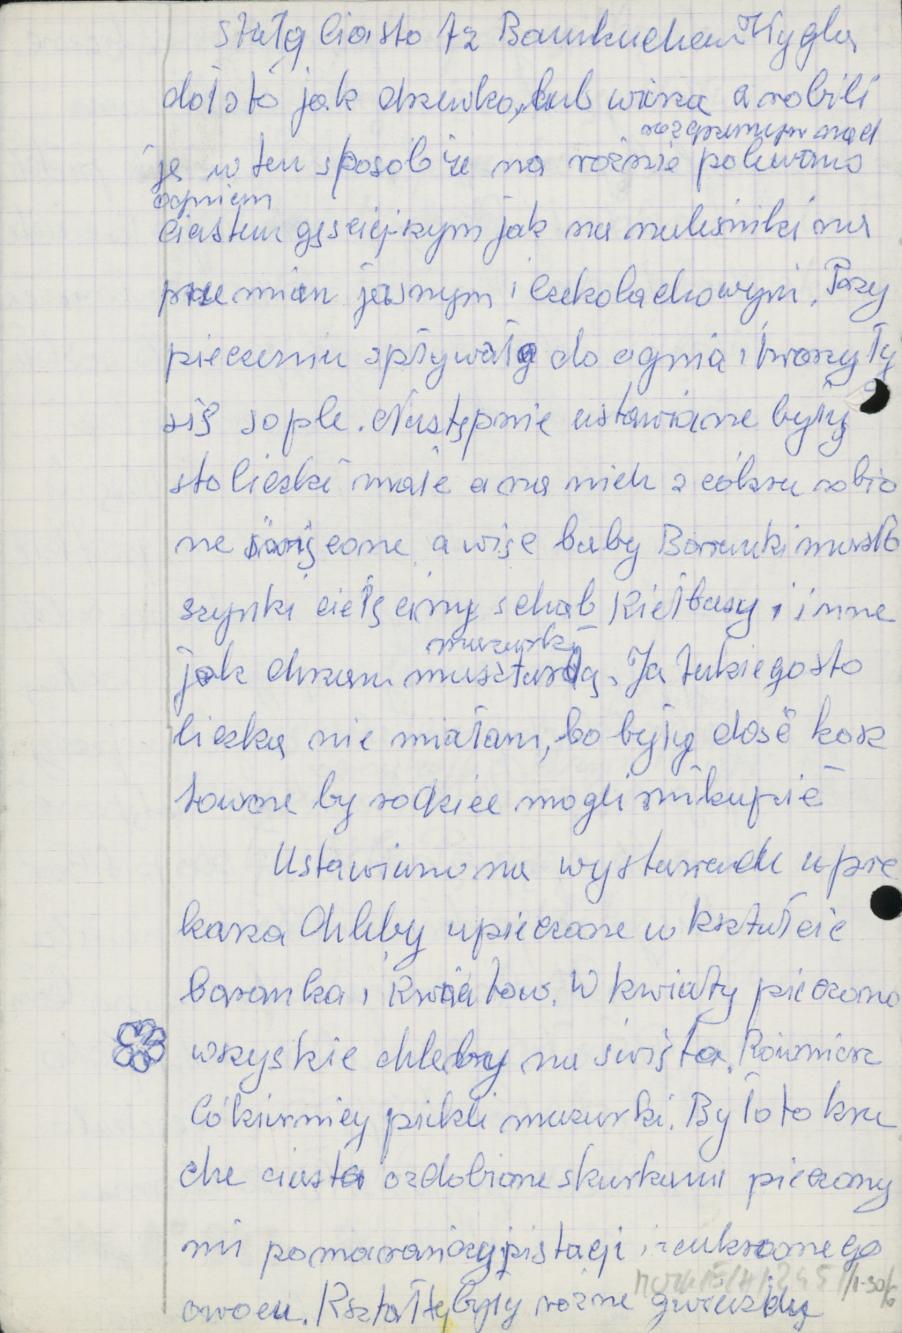 stałą ciasto tz Baumkuchen Wygląda
dało to jak drzewko, lub wieża a robili
rozgrzanym nad
ję w ten sposób że na rożnie polewano
ogniem
ciastem gęsciejszym jak na naleśniki na
przemian jasnym i czekoladowym. Przy
pieczeniu spływało do ognia i tworzyły
się sople. Następnie ustawiane były
stoliczki małe a na nich z cókru robio
ne święcone a więc baby Baranki masło
szynki cielęciny schab Kiełbasy i inne
mazurki
jak chrzan musztardą. Ja takiego sto
liczka nie miałam, bo były dość kosz
towne by rodzice mogli mi kupić
Ustawiano na wystawach u pie
karza Chleby upieczone w kształcie
baranka i Kwiatow. W kwiaty pieczono
wszyskie chleby na święta. Rownież
Cókiernicy piekli mazurki. Było to kru
che ciasta ozdobione skurkami pieczony
mi pomarańczy pistacji i cukrzonego
owocu. Kształty były rożne gwiazdy